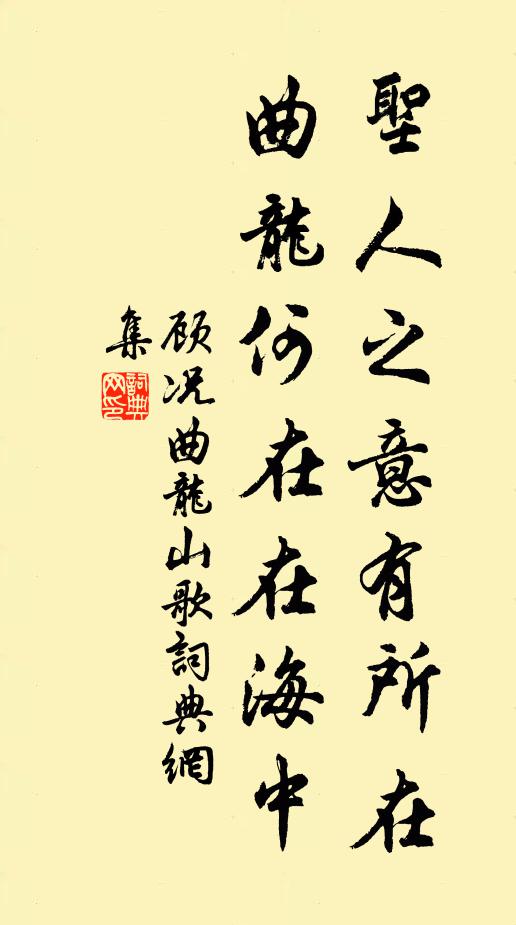 聖人之意有所在
曲龍何在在海中
顾况曲龍山歌詞典網
集
詞典
网印